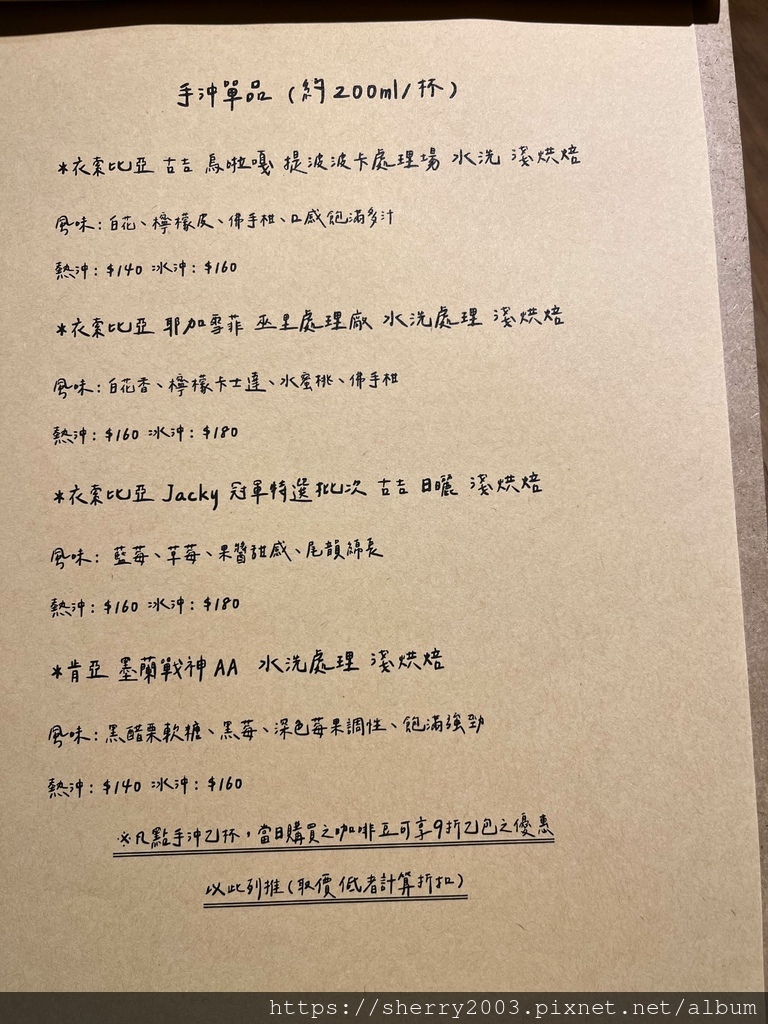 手沖單品（約200ml/杯）
*衣索比亞 古吉 烏啦嘎 提波波卡處理場 水洗 淺烘焙
風味：白花、檸檬皮、佛手柑、口感飽滿多汁
熱沖：$140 冰沖：$160
*衣索比亞 耶加雪菲 巫里處理廠 水洗處理 淺烘焙
風味：白花香、檸檬卡士達、水蜜桃、佛手柑
熱沖：$160 冰沖：$180
*衣索比亞 Jacky 冠軍特選批次 古吉 日曬 淺烘焙
風味：藍莓、草莓、果醬甜感、尾韻綿長
熱沖：$160 冰沖：$180
*肯亞 墨蘭戰神 AA 水洗處理 淺烘焙
風味：黑醋栗軟糖、黑莓、深色莓果調性、飽滿強勁
熱沖：$140 冰沖：$160
※凡點手沖乙杯，當日購買之咖啡豆可享9折乙包之優惠
以此列推（取價低者計算折扣）
https://sherry2003.pixnet.net/album